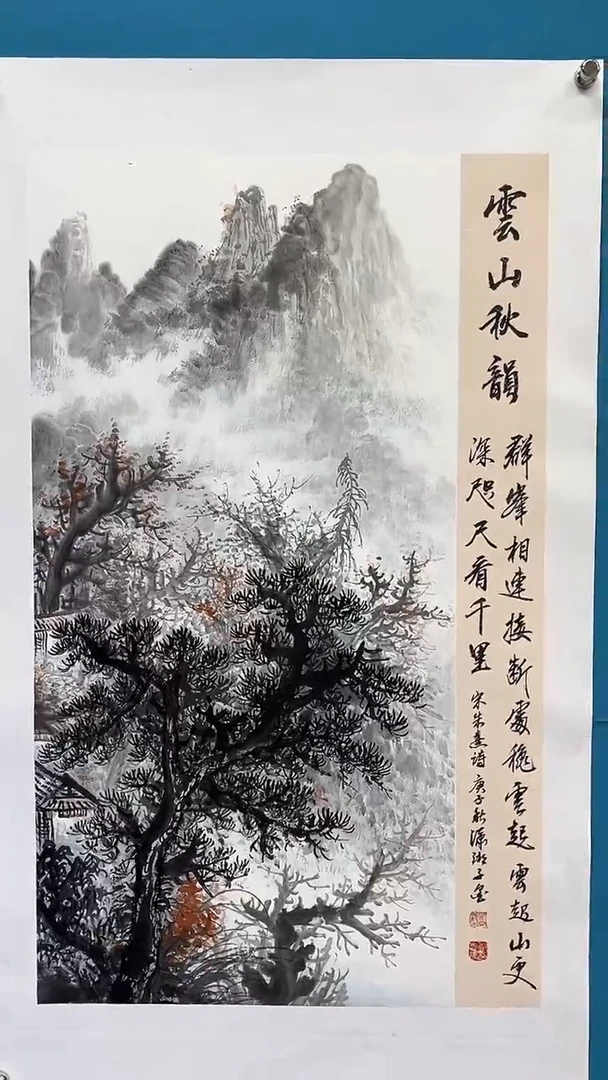 雲山秋韻
群峯相連接斷處穐雲起雲起山更
深咫尺看千里
宋朱熹詩 庚子秋瀟湘子畫